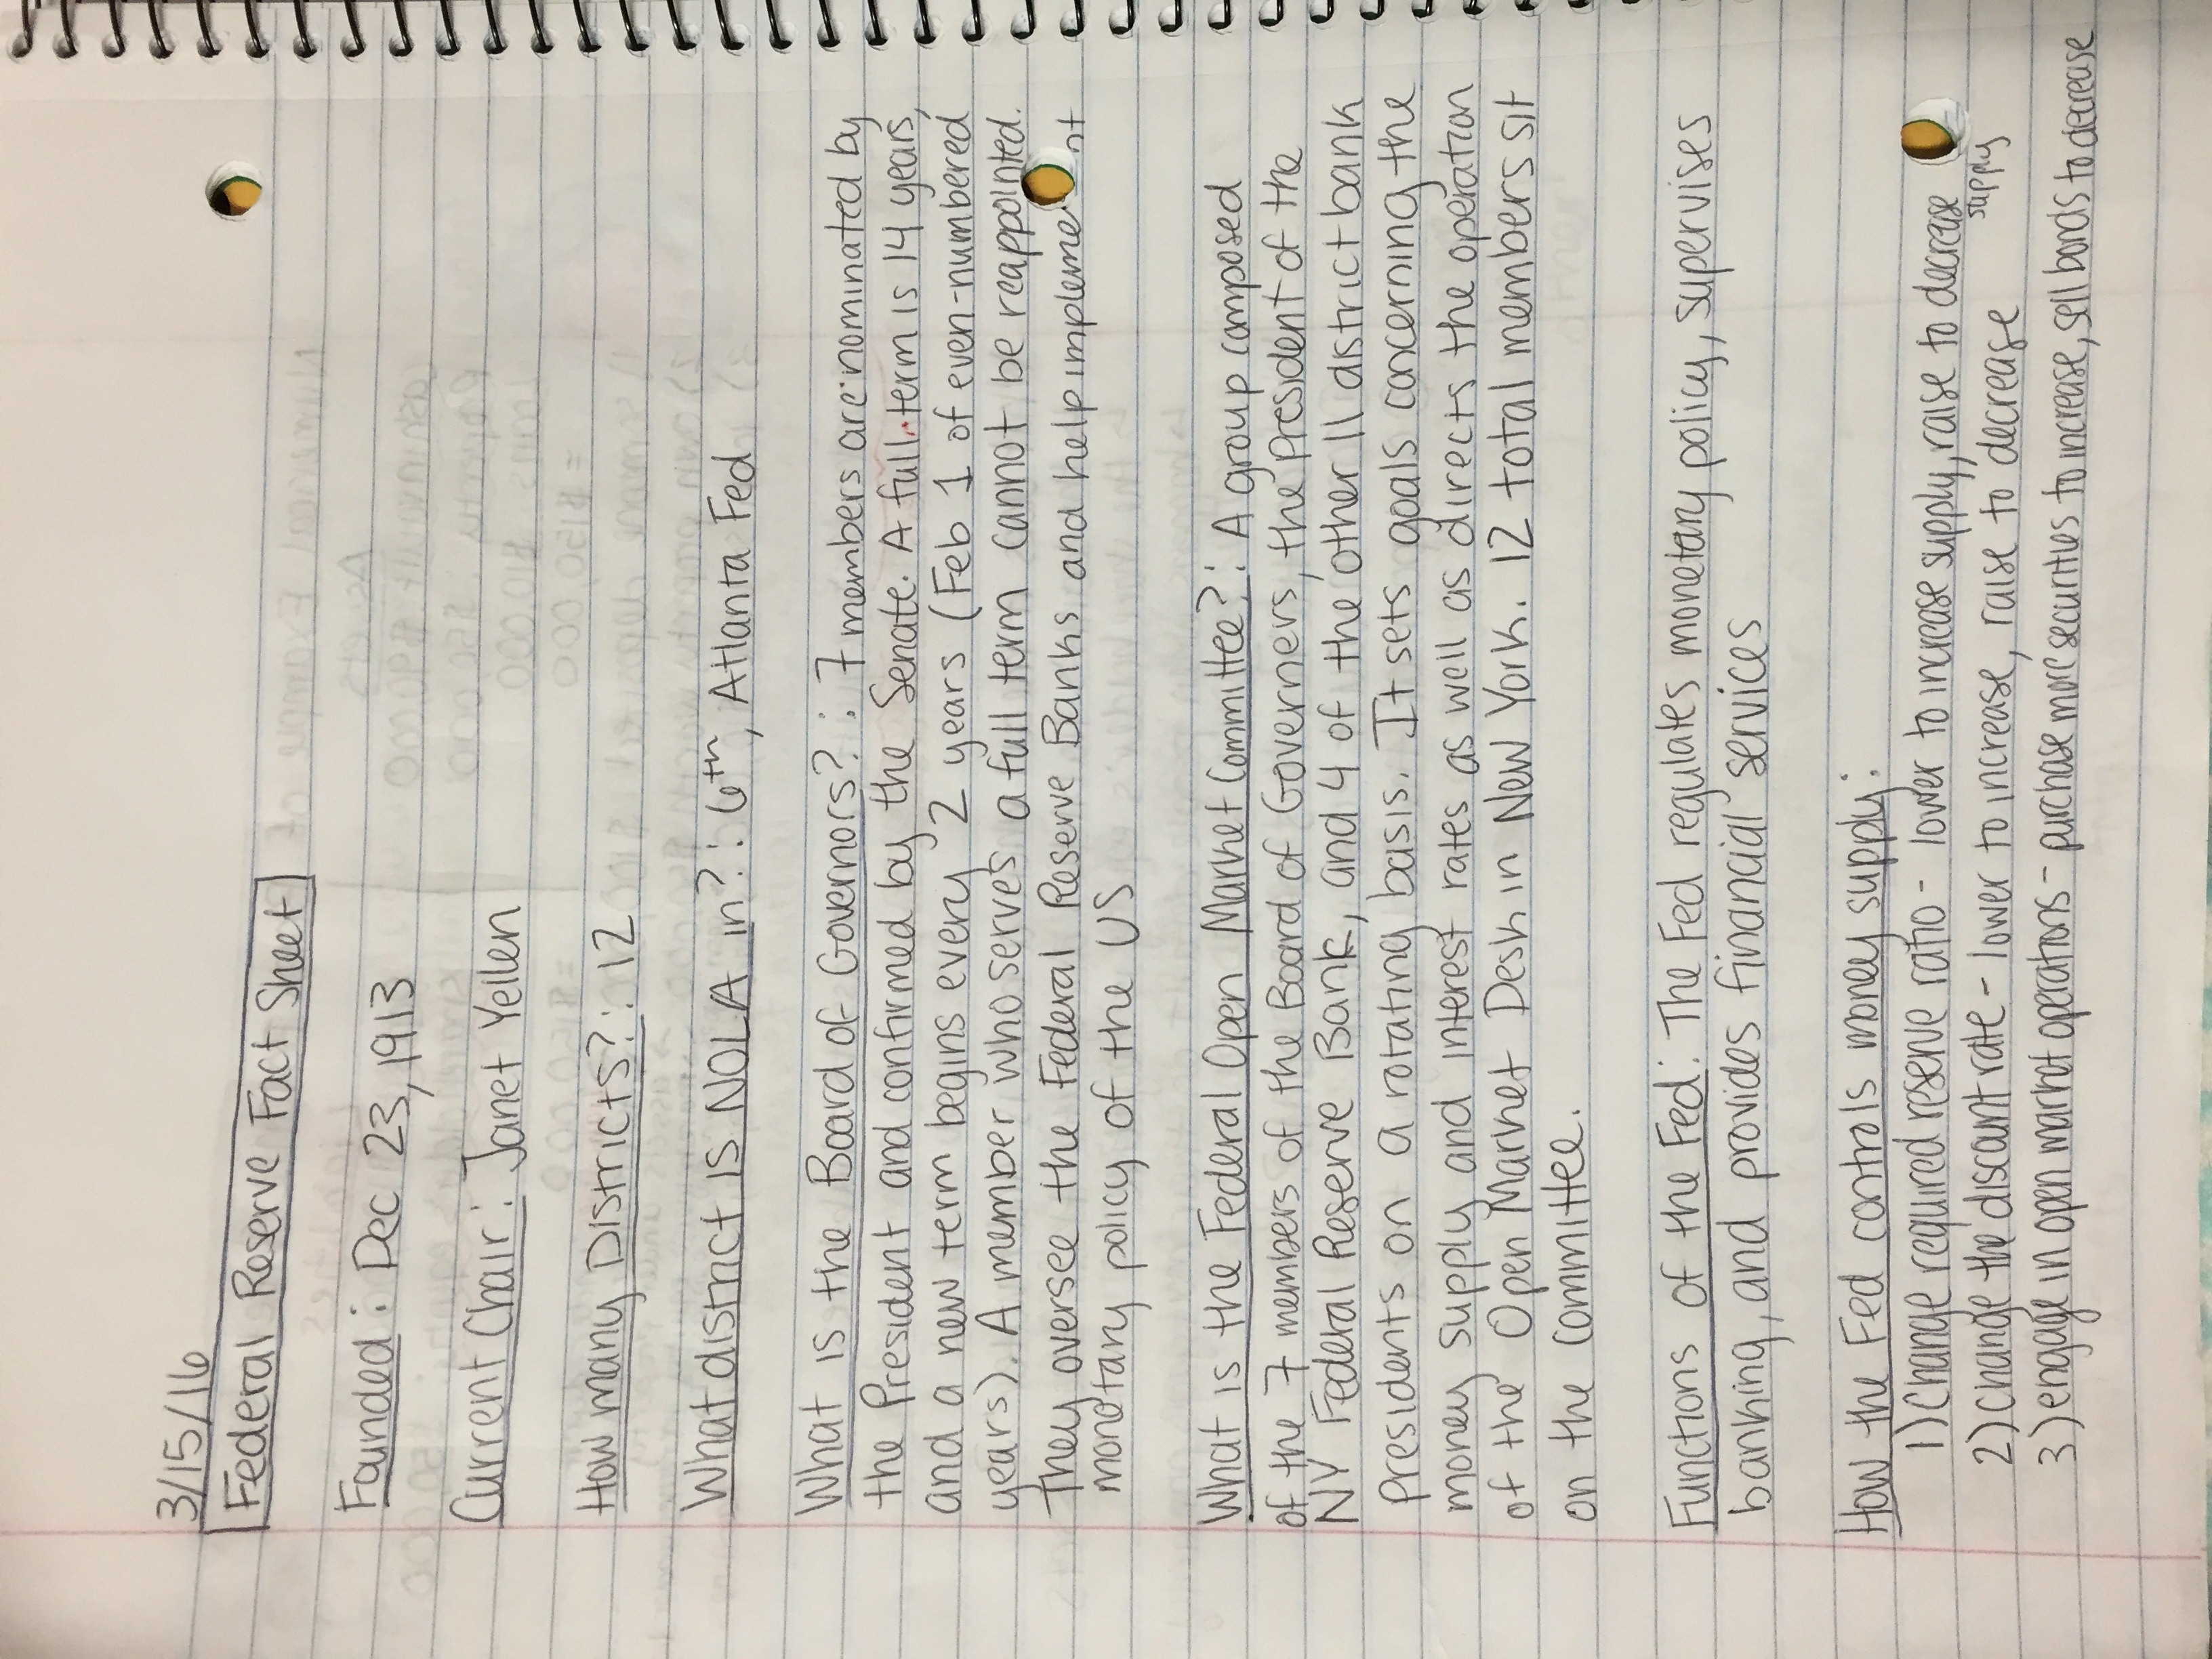 3/15/16
Federal Reserve Fact Sheet
Founded: Dec 23, 1913
Current Chair: Janet Yellen
How many Districts?: 12
What district is NOLA in?: 6th, Atlanta Fed
What is the Board of Governors?: 7 members are nominated by
the President and confirmed by the Senate. A full term is 14 years,
and a new term begins every 2 years (Feb 1 of even-numbered
years). A member who serves a full term cannot be reappointed.
They oversee the Federal Reserve Banks and help implement
monetary policy of the US
What is the Federal Open Market Committee?: A group composed
of the 7 members of the Board of Governers, the President of the
NY Federal Reserve Bank, and 4 of the other 11 district bank
presidents on a rotating basis. It sets goals concerning the
money supply and interest rates as well as directs the operation
of the Open Market Desk in New York. 12 total members sit
on the committee.
Functions of the Fed: The Fed regulates monetary policy, supervises
banking, and provides financial services
How the Fed controls money supply:
1) Change required reserve ratio - lower to increase supply, raise to decrease
supply
2) change the discount rate - lower to increase, raise to decrease
3) engage in open market operations - purchase more securities to increase, sell bonds to decrease